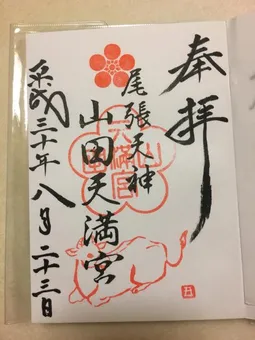 奉拝
尾張天神
山田天満宮
平成三十年八月二十三日